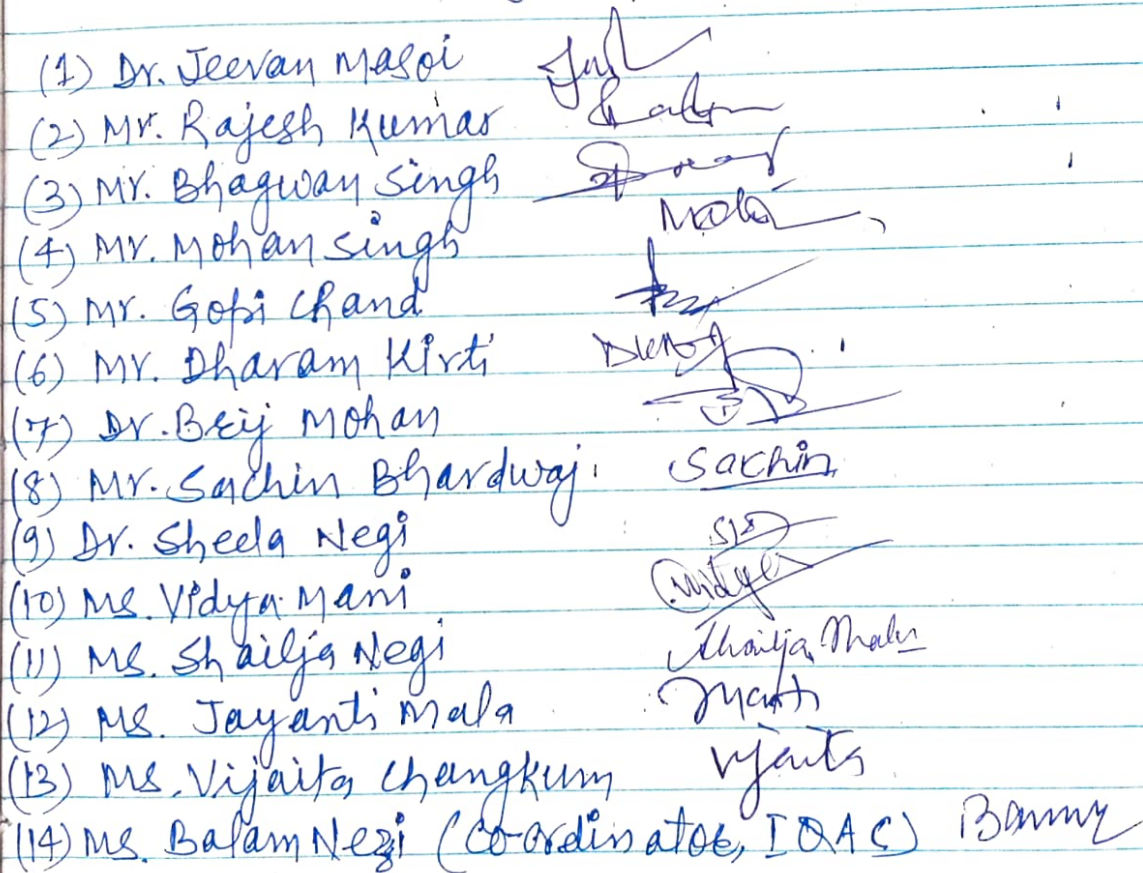 (1) Dr. Jeevan Masoi
(2) Mr. Rajesh Kumar
(3) Mr. Bhagwan Singh
(4) Mr. Mohan Singh
(5) Mr. Gopi Chand
(6) Mr. Dharam Kirti
(7) Dr. Brij Mohan
(8) Mr. Sachin Bhardwaj. Sachin
(9) Dr. Sheela Negi
(10) Ms. Vidya Mani Vidya
(11) Ms. Shailja Negi Shailja
(12) Ms. Jayanti Mala
(13) Ms. Vijaita Changkum Vijaita
(14) Ms. Balam Negi (Co-ordinator, IQAC)